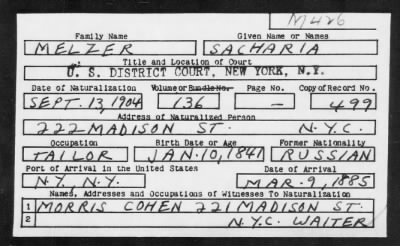 M426
Family Name Given Name or Names
MELZER SACHARIA
Title and Location of Court
U. S. DISTRICT COURT, NEW YORK, N.Y.
Date of Naturalization Volume or Bundle No. Page No. Copy of Record No.
SEPT. 13, 1904 136 — 499
Address of Naturalized Person
222 MADISON ST. N.Y.C.
Occupation Birth Date or Age Former Nationality
TAILOR JAN. 10, 1841 RUSSIAN
Port of Arrival in the United States Date of Arrival
N.Y. N.Y. MAR. 9, 1885
Names, Addresses and Occupations of Witnesses To Naturalization
1 MORRIS COHEN 221 MADISON ST.
2 N.Y.C. WAITER